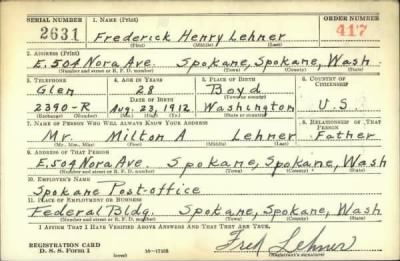 SERIAL NUMBER 1. NAME (Print) ORDER NUMBER
2631 Frederick Henry Lehner 417
(First) (Middle) (Last)
2. ADDRESS (Print)
E. 504 Nora Ave. Spokane, Spokane, Wash
(Number and street or R. F. D. number) (Town) (County) (State)
3. TELEPHONE 4. AGE IN YEARS 5. PLACE OF BIRTH 6. COUNTRY OF
Glen 28 Boyd CITIZENSHIP
DATE OF BIRTH (Town or county)
2390-R Aug. 23, 1912 Washington U S
(Exchange) (Number) (Mo.) (Day) (Yr.) (State or country)
7. NAME OF PERSON WHO WILL ALWAYS KNOW YOUR ADDRESS 8. RELATIONSHIP OF THAT PERSON
Mr. Milton A Lehner Father
(Mr., Mrs., Miss) (First) (Middle) (Last)
9. ADDRESS OF THAT PERSON
E. 504 Nora Ave. Spokane, Spokane, Wash
(Number and street or R. F. D. number) (Town) (County) (State)
10. EMPLOYER'S NAME
Spokane Post-office
11. PLACE OF EMPLOYMENT OR BUSINESS
Federal Bldg. Spokane, Spokane, Wash
(Number and street or R. F. D. number) (Town) (County) (State)
I AFFIRM THAT I HAVE VERIFIED ABOVE ANSWERS AND THAT THEY ARE TRUE.
REGISTRATION CARD
D. S. S. Form 1 (over) Fred Lehner
(Signature)